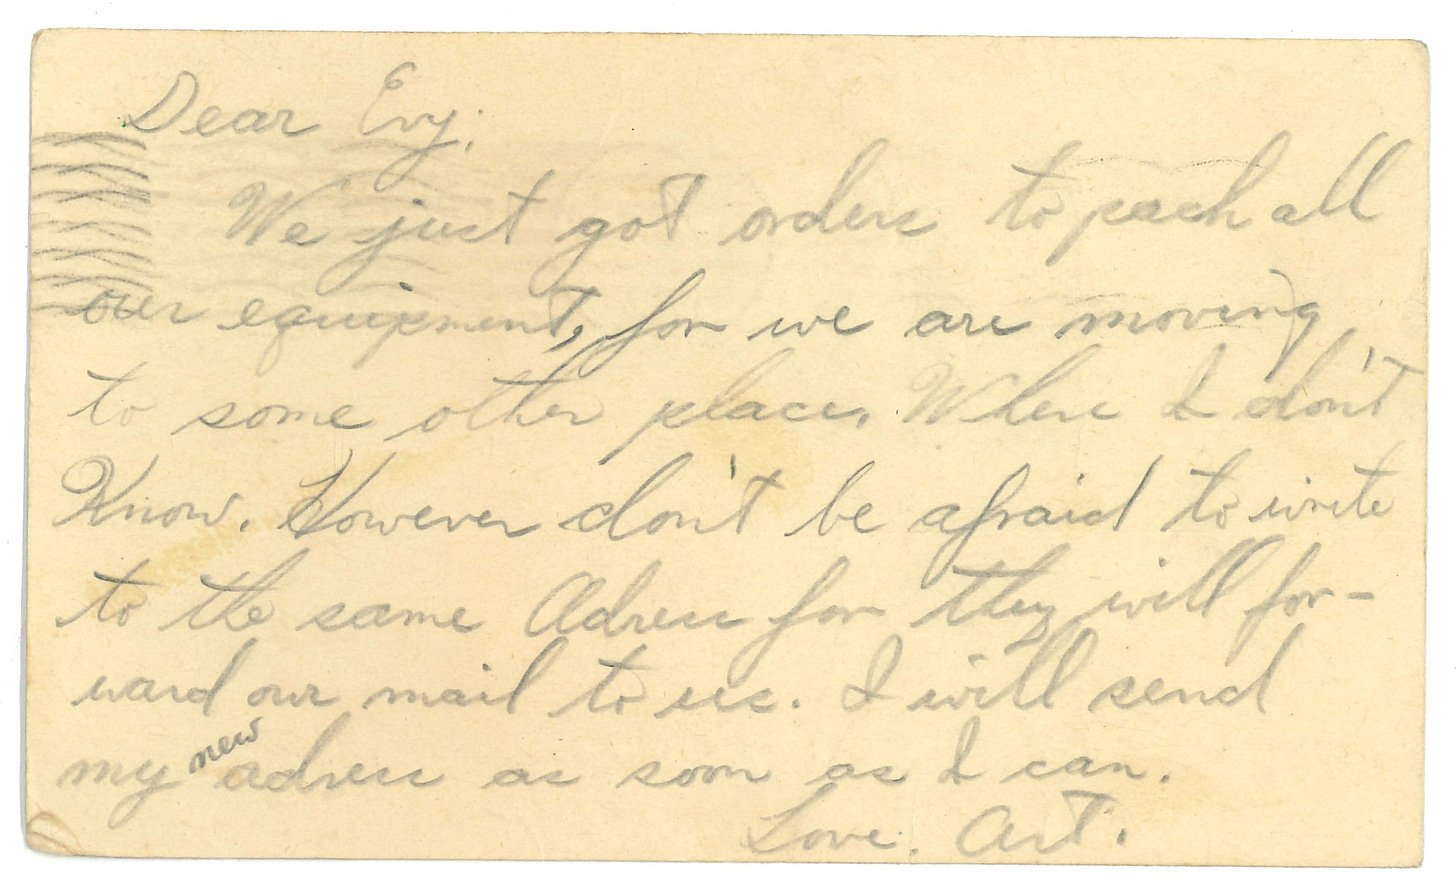 Dear Evy;
We just got orders to pack all
our equipment, for we are moving
to some other place. Where I don't
Know. However don't be afraid to write
to the same Adress for they will for-
ward our mail to us. I will send
my new adress as soon as I can.
Love. Art.